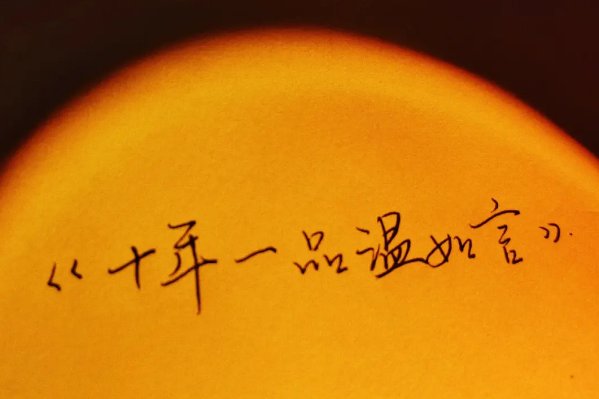 《十年一品温如言》.